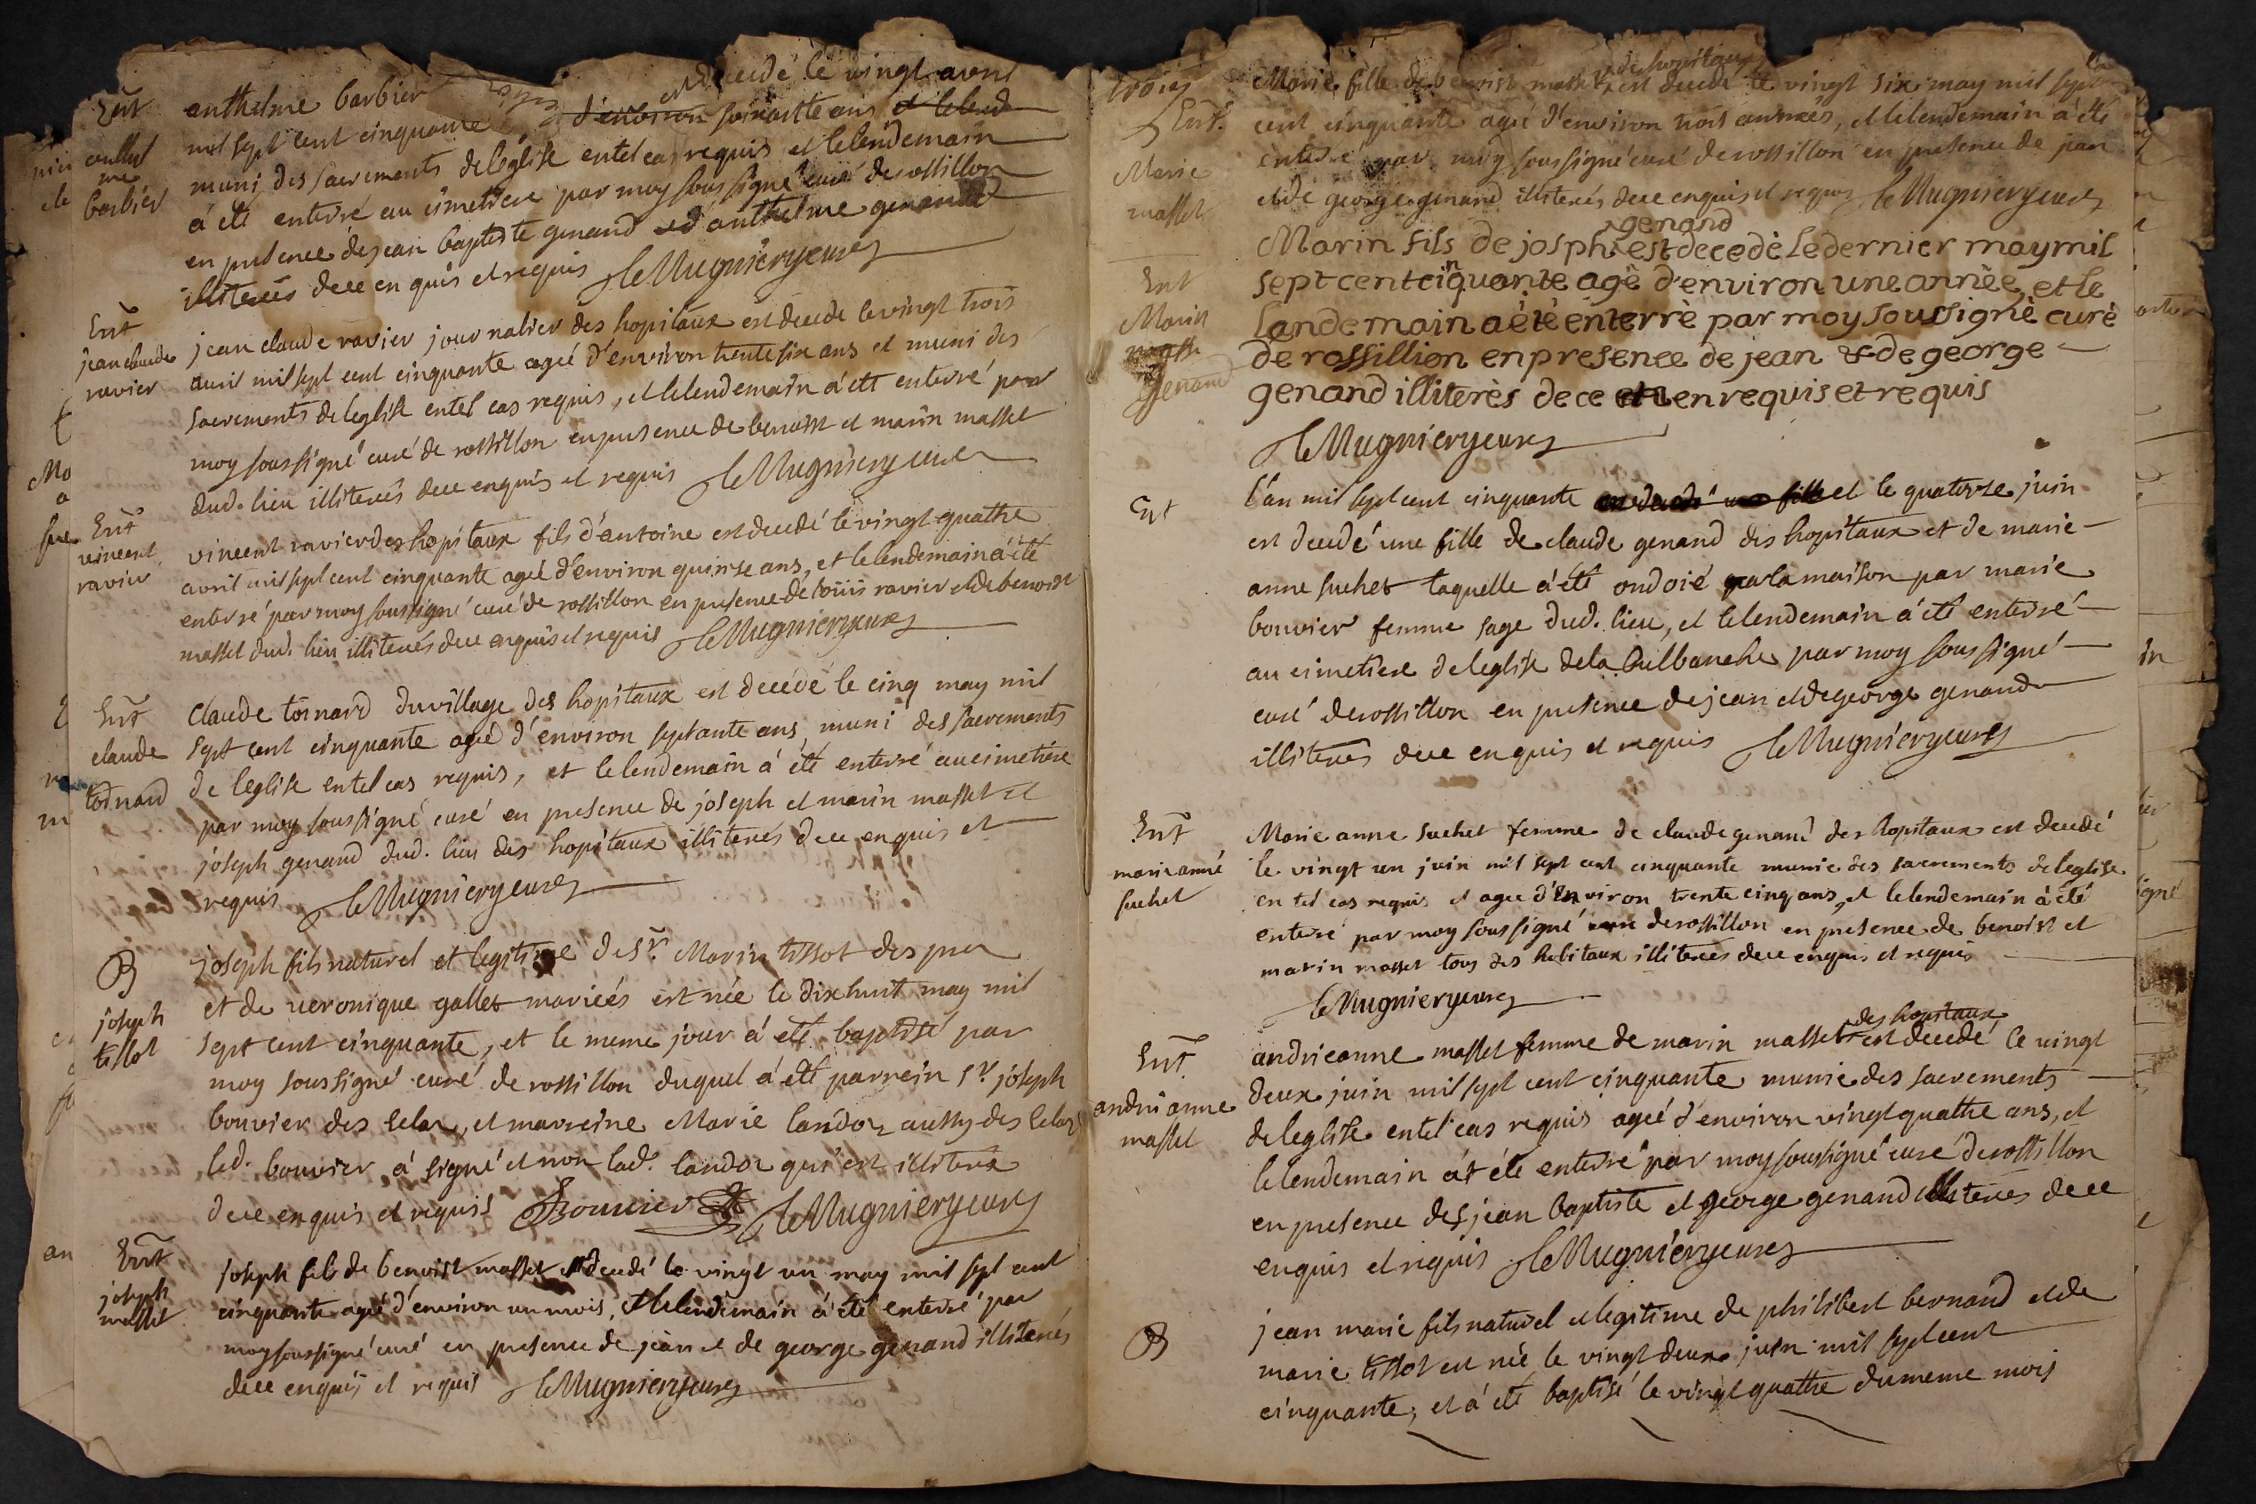 Ent
anthel
me
barbier
anthelme barbier est decedé le vingt avril
mil sept cent cinquante d'environ soixante ans et le lend
muni des sacrements de leglise entel cas requis et lelendemain
à été enterré au cimetiere par moy soussigné curé de rossillon
en presence de jean baptiste genand et d'anthelme genand
illiterés dece enquis et requis leMugniery curé
Ent
jean claude
ravier
jean claude ravier journalier des hopitaux est decedé le vingt trois
avril mil sept cent cinquante ageé d'environ trente six ans et muni des
sacrements de leglise entel cas requis, et lelendemain à été enterré par
moy soussigné curé de rossillon en presence de benoist et marin masset
dud. lieu illiterés dece enquis et requis leMugniery curé
Ent
vincent
ravier
vincent ravier des hopitaux fils d'antoine est decedé le vingt quattre
avril mil sept cent cinquante ageé d'environ quinse ans, et lelendemain à été
enterré par moy soussigné curé de rossillon en presence de louis ravier et de benoist
masset dud. lieu illiterés dece enquis et requis leMugniery curé
Ent
claude
toinard
claude toinard du village des hopitaux est decédé le cinq may mil
sept cent cinquante ageé d'environ septante ans, muni des sacrements
de leglise entel cas requis, et lelendemain à été enterré au cimetiere
par moy soussigné curé en presence de joseph et marin masset et
joseph genand dud. lieu des hopitaux illiterés dece enquis et
requis leMugniery curé
B
joseph
tissot
joseph fils naturel et legitime de sr. Marin tissot des prez
et de veronique gallet marieés est née le dixhuit may mil
sept cent cinquante, et le meme jour à eté baptisé par
moy soussigné curé de rossillon duquel à eté parrein sr. joseph
bouvier des lelaz, et marreine Marie landoz aussy des lelaz
led. bouvier à signé et non lad. landoz qui est illiterée
dece enquis et requis Bouvier leMugniery curé
Ent
joseph
masset
joseph fils de benoist masset est decedé le vingt un may mil sept cent
cinquante ageé d'environ un mois, et lelendemain à eté enterré par
moy soussigné curé en presence de jean et de george genand illiterés
dece enquis et requis leMugniery curé
trois
Ent.
Marie
masset
des hopitaux
Marie fille de benoist masset est decedé le vingt six may mil sept
cent cinquante ageé d'environ trois anneés, et lelendemain à été
enterré par moy soussigné curé de rossillon en presence de jean
et de george genand illiterés dece enquis et requis leMugniery curé
Ent
Marin
genand
genand
Marin fils de josph est decedè le dernier may mil
sept cent cinquante agè d'environ une annèe, et le
landemain a ètè enterrè par moy soussignè curè
de rossillion en presence de jean & de george
genand illiterès de ce enrequis et requis
leMugniery curé
Ent
l'an mil sept cent cinquante et le quatorse juin
est decedé une fille de claude genand des hopitaux et de marie
anne suchet laquelle à été ondoié a la maison par marie
bouvier femme sage dud. lieu, et lelendemain à été enterré
au cimetiere de leglise de la Bulbanche par moy soussigné
curé de rossillon en presence de jean et de george genand
illiterés dece enquis et requis leMugniery curé
Ent
marie anne
suchet
Marie anne suchet femme de claude genand des hopitaux est decedé
le vingt un juin mil sept cent cinquante munie des sacrements de leglise
en tel cas requis et ageé d'environ trente cinq ans, et lelendemain à été
enterré par moy soussigné curé de rossillon en presence de benoist et
marin masset tous des hobitaux illiterés dece enquis et requis
leMugniery curé
Ent
andrianne
masset
des hopitaux
andrieanne masset femme de marin masset est decedé le vingt
deux juin mil sept cent cinquante munie des sacrements
de leglise entel cas requis ageé d'environ vingt quattre ans, et
lelendemain à été enterré par moy soussigné curé de rossillon
en presence des jean baptiste et george genand illiterés dece
enquis et requis leMugniery curé
B
jean marie fils naturel et legitime de philibert bernand et de
marie tissot est née le vingt deux juin mil sept cent
cinquante, et à été baptisé le vingt quattre du meme mois